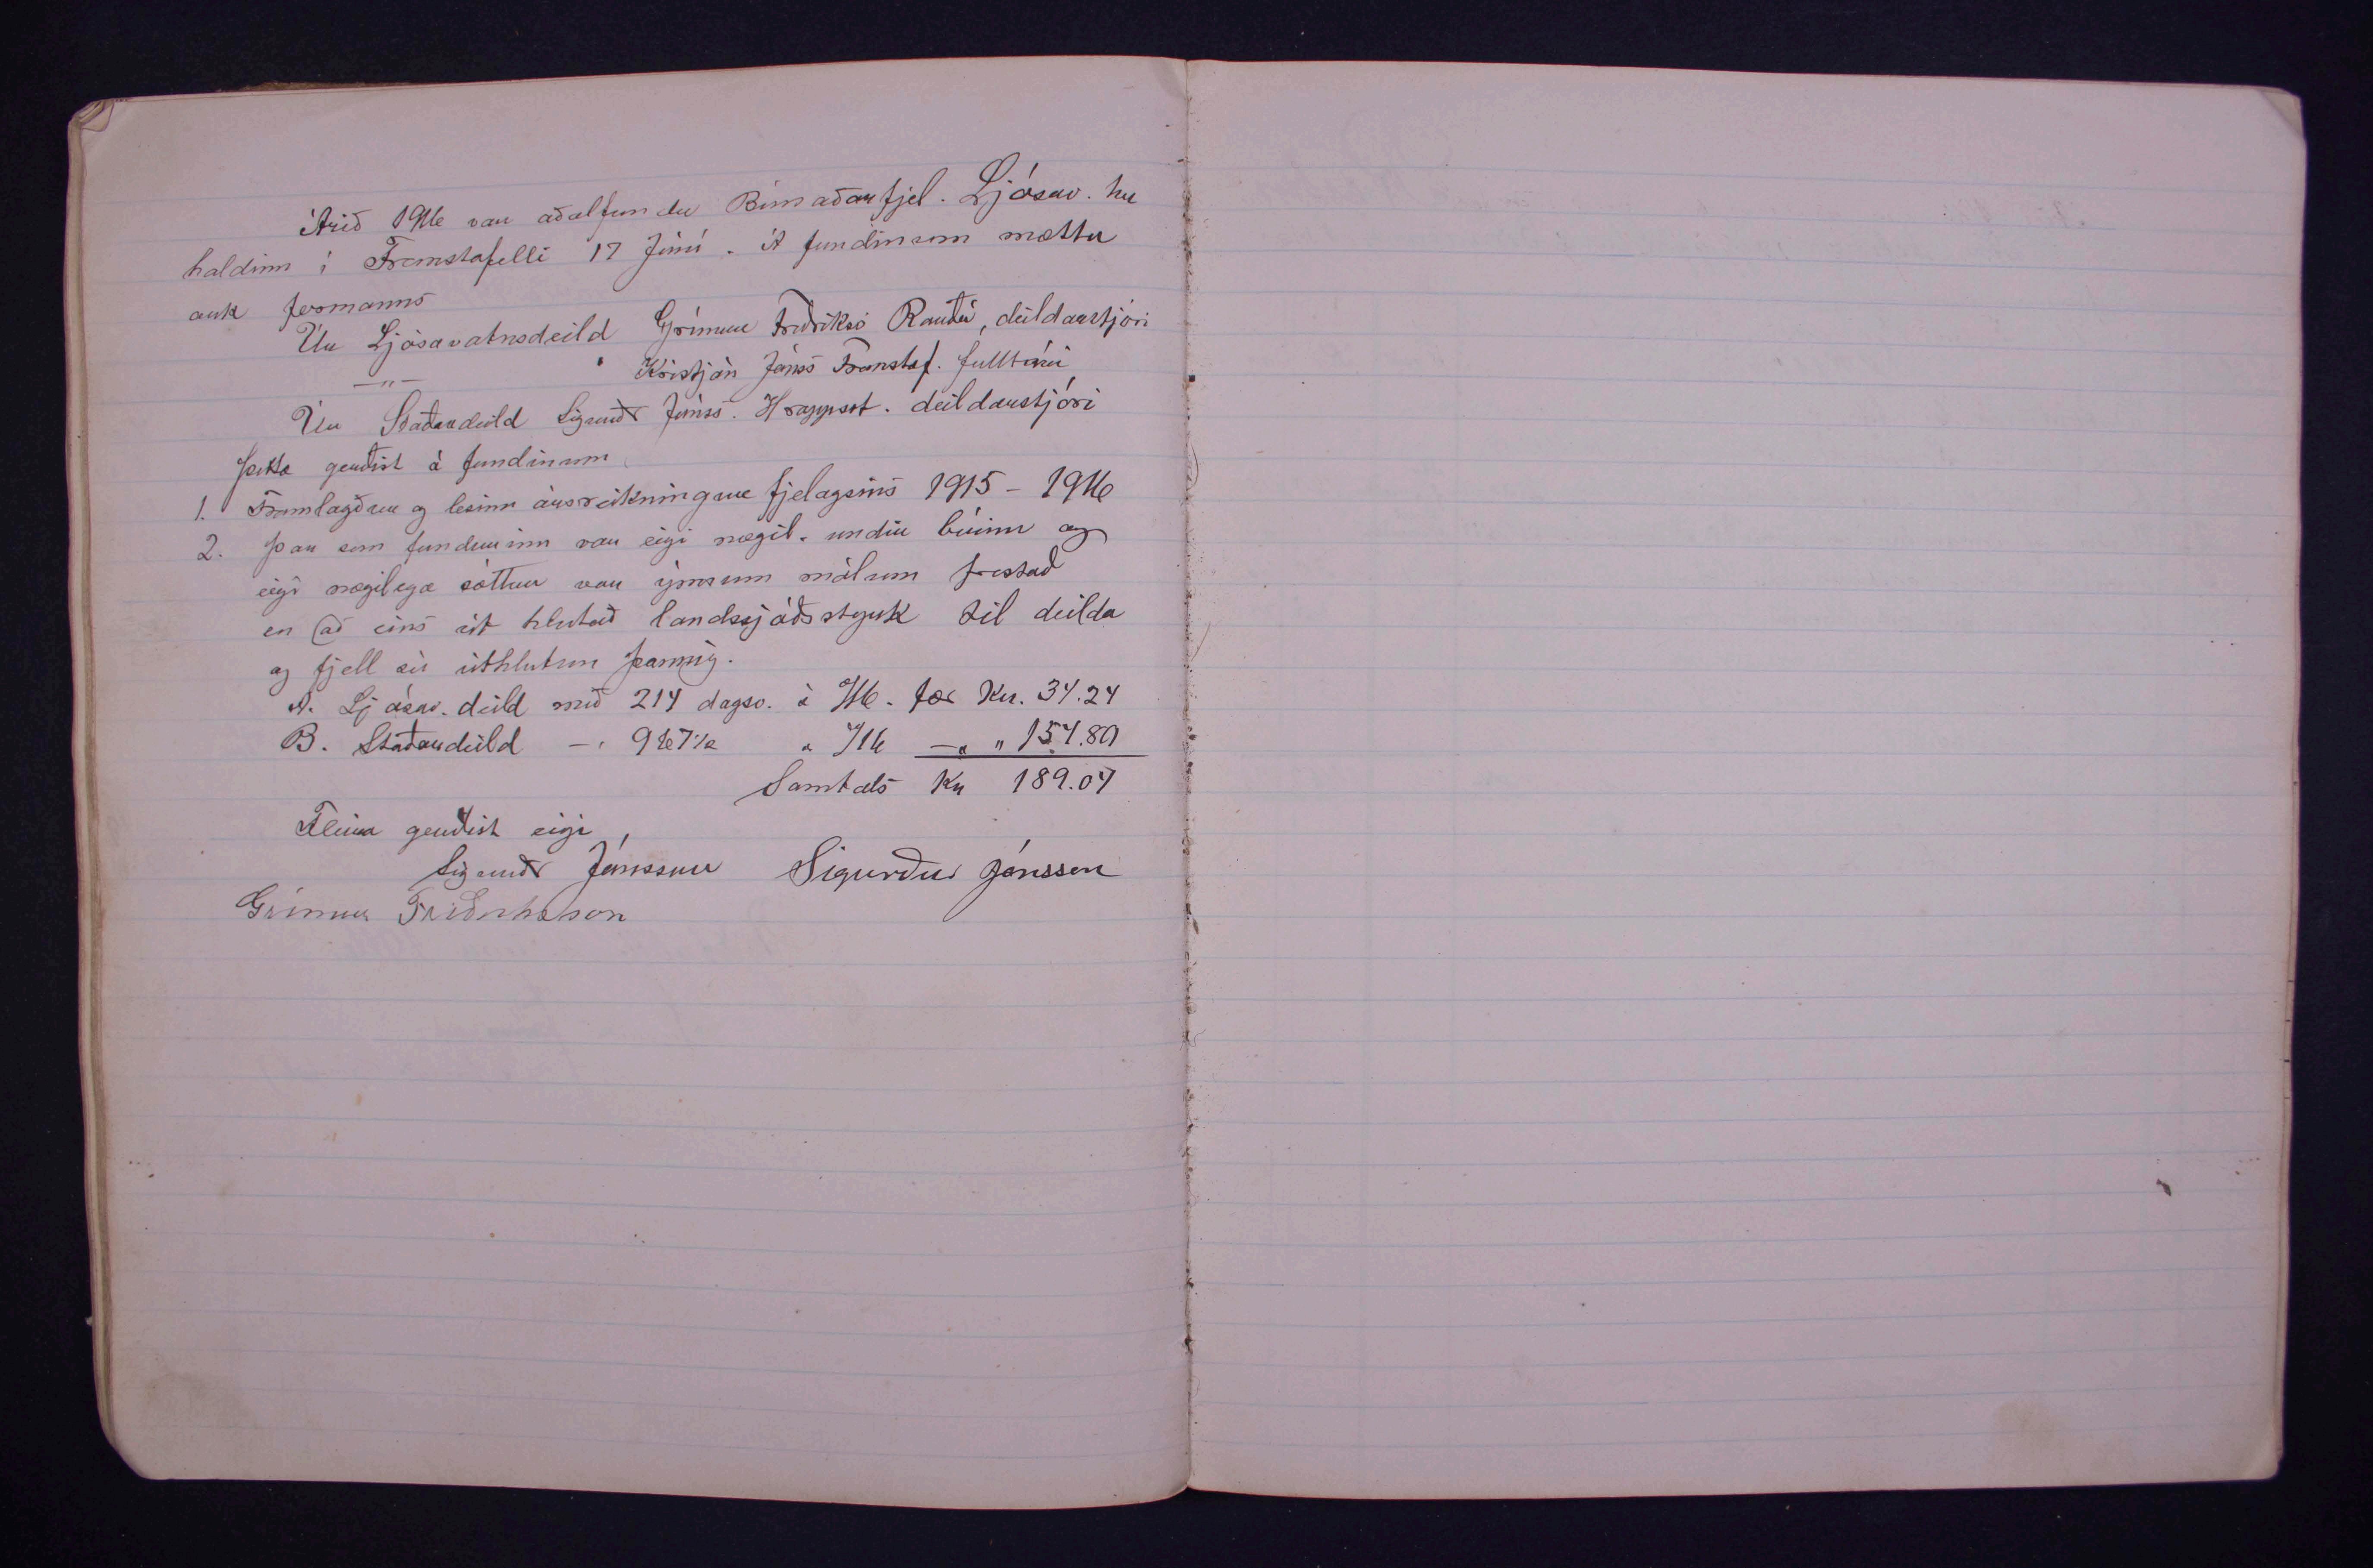 Árið 1916 var aðalfundur Búnaðarfjel. Ljósav. hr
haldinn í Fremstafelli 17 Júní. Á fundinum mættu
auk formanns
Úr Ljósavatnsdeild Grímur Friðrikss Rauðá, deildarstjóri
—"— " Kristján Jónss Fremstaf. fulltrúi
Úr Staðardeild Sigurðr Jónss. Hrappsst. deildarstjóri
Þetta gerðist á fundinum
1. Framlagður og lesinn ársreikningur fjelagsins 1915 – 1916
2. Þar sem fundurinn var eigi nægil. undir búinn og
eigi nægilega sóttur var ýmsum málum frestað
en að eins út hlutað landssjóðsstyrk til deilda
og fjell sú úthlutun þannig.
A. Ljósav. deild með 214 dagsv. á /16. fær Kr. 34.24
B. Staðardeild —" 967½ " /16 —" " 154.80
Samtals Kr 189.04
Fleira gerðist eigi,
Sigurðr Jónsson Sigurður Jónsson
Grímur Friðriksson